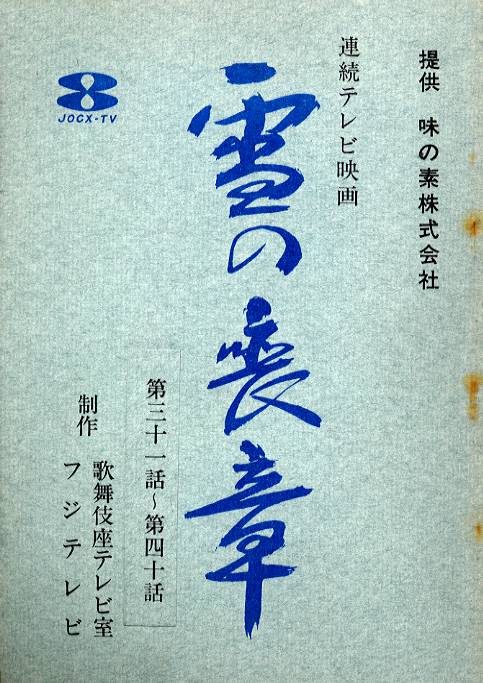 提供 味の素株式会社
連続テレビ映画
雪の喪章
第三十一話～第四十話
制作 歌舞伎座テレビ室
フジテレビ
JOCX-TV